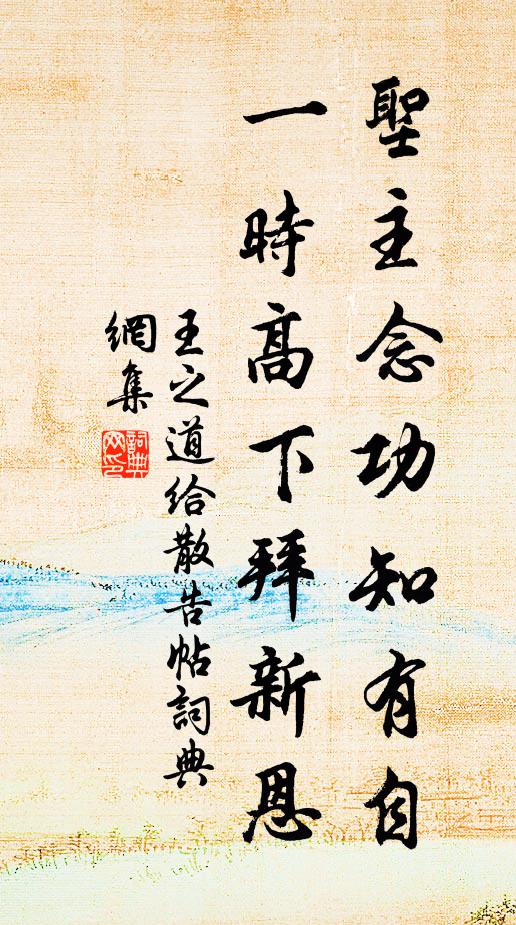 聖主念功知有自
一時高下拜新恩
王之道給散告帖詞典
網集
詞典
网印